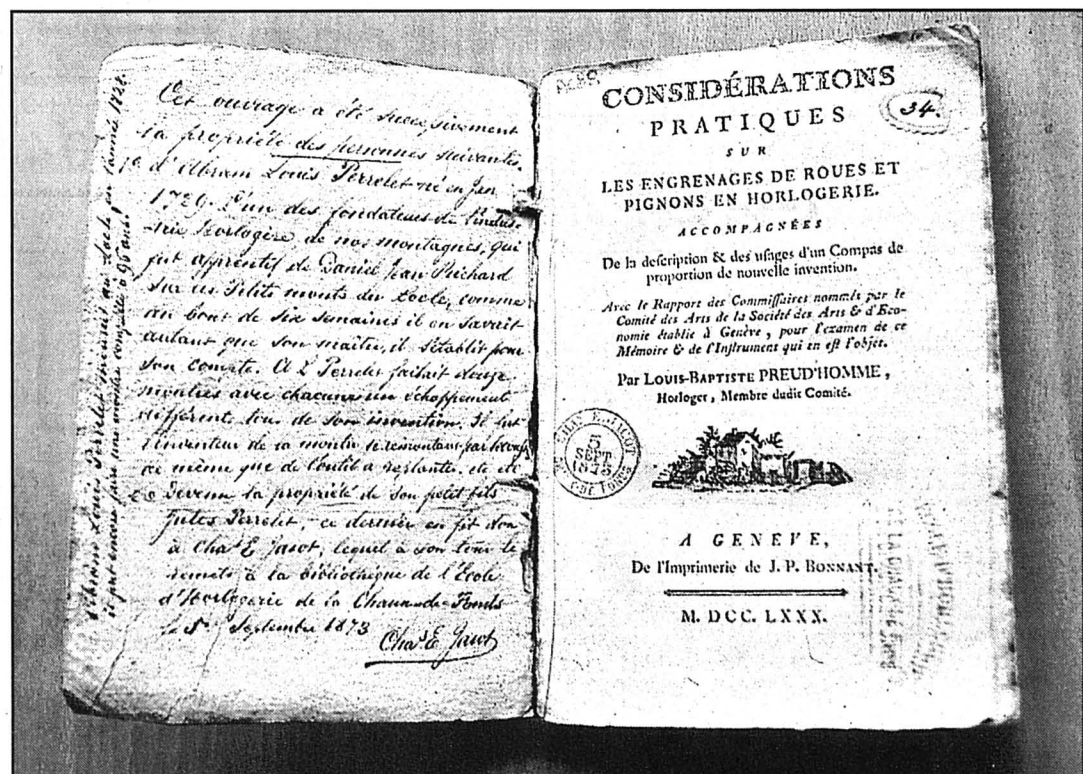 Cet ouvrage a été successivement
la propriété des personnes suivantes.
1o. d'Abram Louis Perrelet né en Jan
1729. l'un des fondateurs de l'indus-
trie horlogère de nos montagnes, qui
fut apprentif de Daniel Jean Richard
sur les Petits monts du Locle, comme
au bout de six semaines il en savait
autant que son maître, il s'établit pour
son compte. A L Perrelet faisait douze
montres avec chacune un échappement
différent tous de son invention. Il fut
l'inventeur de la montre se remontant par
de même que de l'outil à etc etc
2o Devenu la propriété de son petit fils
Jules Perrelet, ce dernier en fit don
à Chas E Jacot, lequel à son tour le
remets à la bibliothèque de l'Ecole
d'Horlogerie de la Chaux-de-Fonds
le 5e Septembre 1873
Chas E Jacot
Abram Louis Perrelet mourut au Locle en l'année 1826.
il put encore faire une montre complète à 96 ans!
CONSIDÉRATIONS
34.
PRATIQUES
SUR
LES ENGRENAGES DE ROUES ET
PIGNONS EN HORLOGERIE.
ACCOMPAGNÉES
De la deſcription & des uſages d'un Compas de
proportion de nouvelle invention.
Avec le Rapport des Commiſſaires nommés par le
Comité des Arts de la Société des Arts & d'Eco-
nomie établie à Genève, pour l'examen de ce
Mémoire & de l'Inſtrument qui en eſt l'objet.
Par LOUIS-BAPTISTE PREUD'HOMME,
Horloger, Membre dudit Comité.
E. JACOT
5
SEPT
1873
C. DE FONDS
A GENEVE,
De l'Imprimerie de J. P. BONNANT.
M. DCC. LXXX.